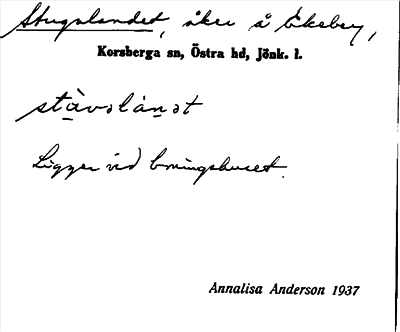 Stugulandet, åker å Ekeby,
Korsberga sn, Östra hd, Jönk. l.
stàvəlánət
Ligger vid boningshuset.
Annalisa Anderson 1937